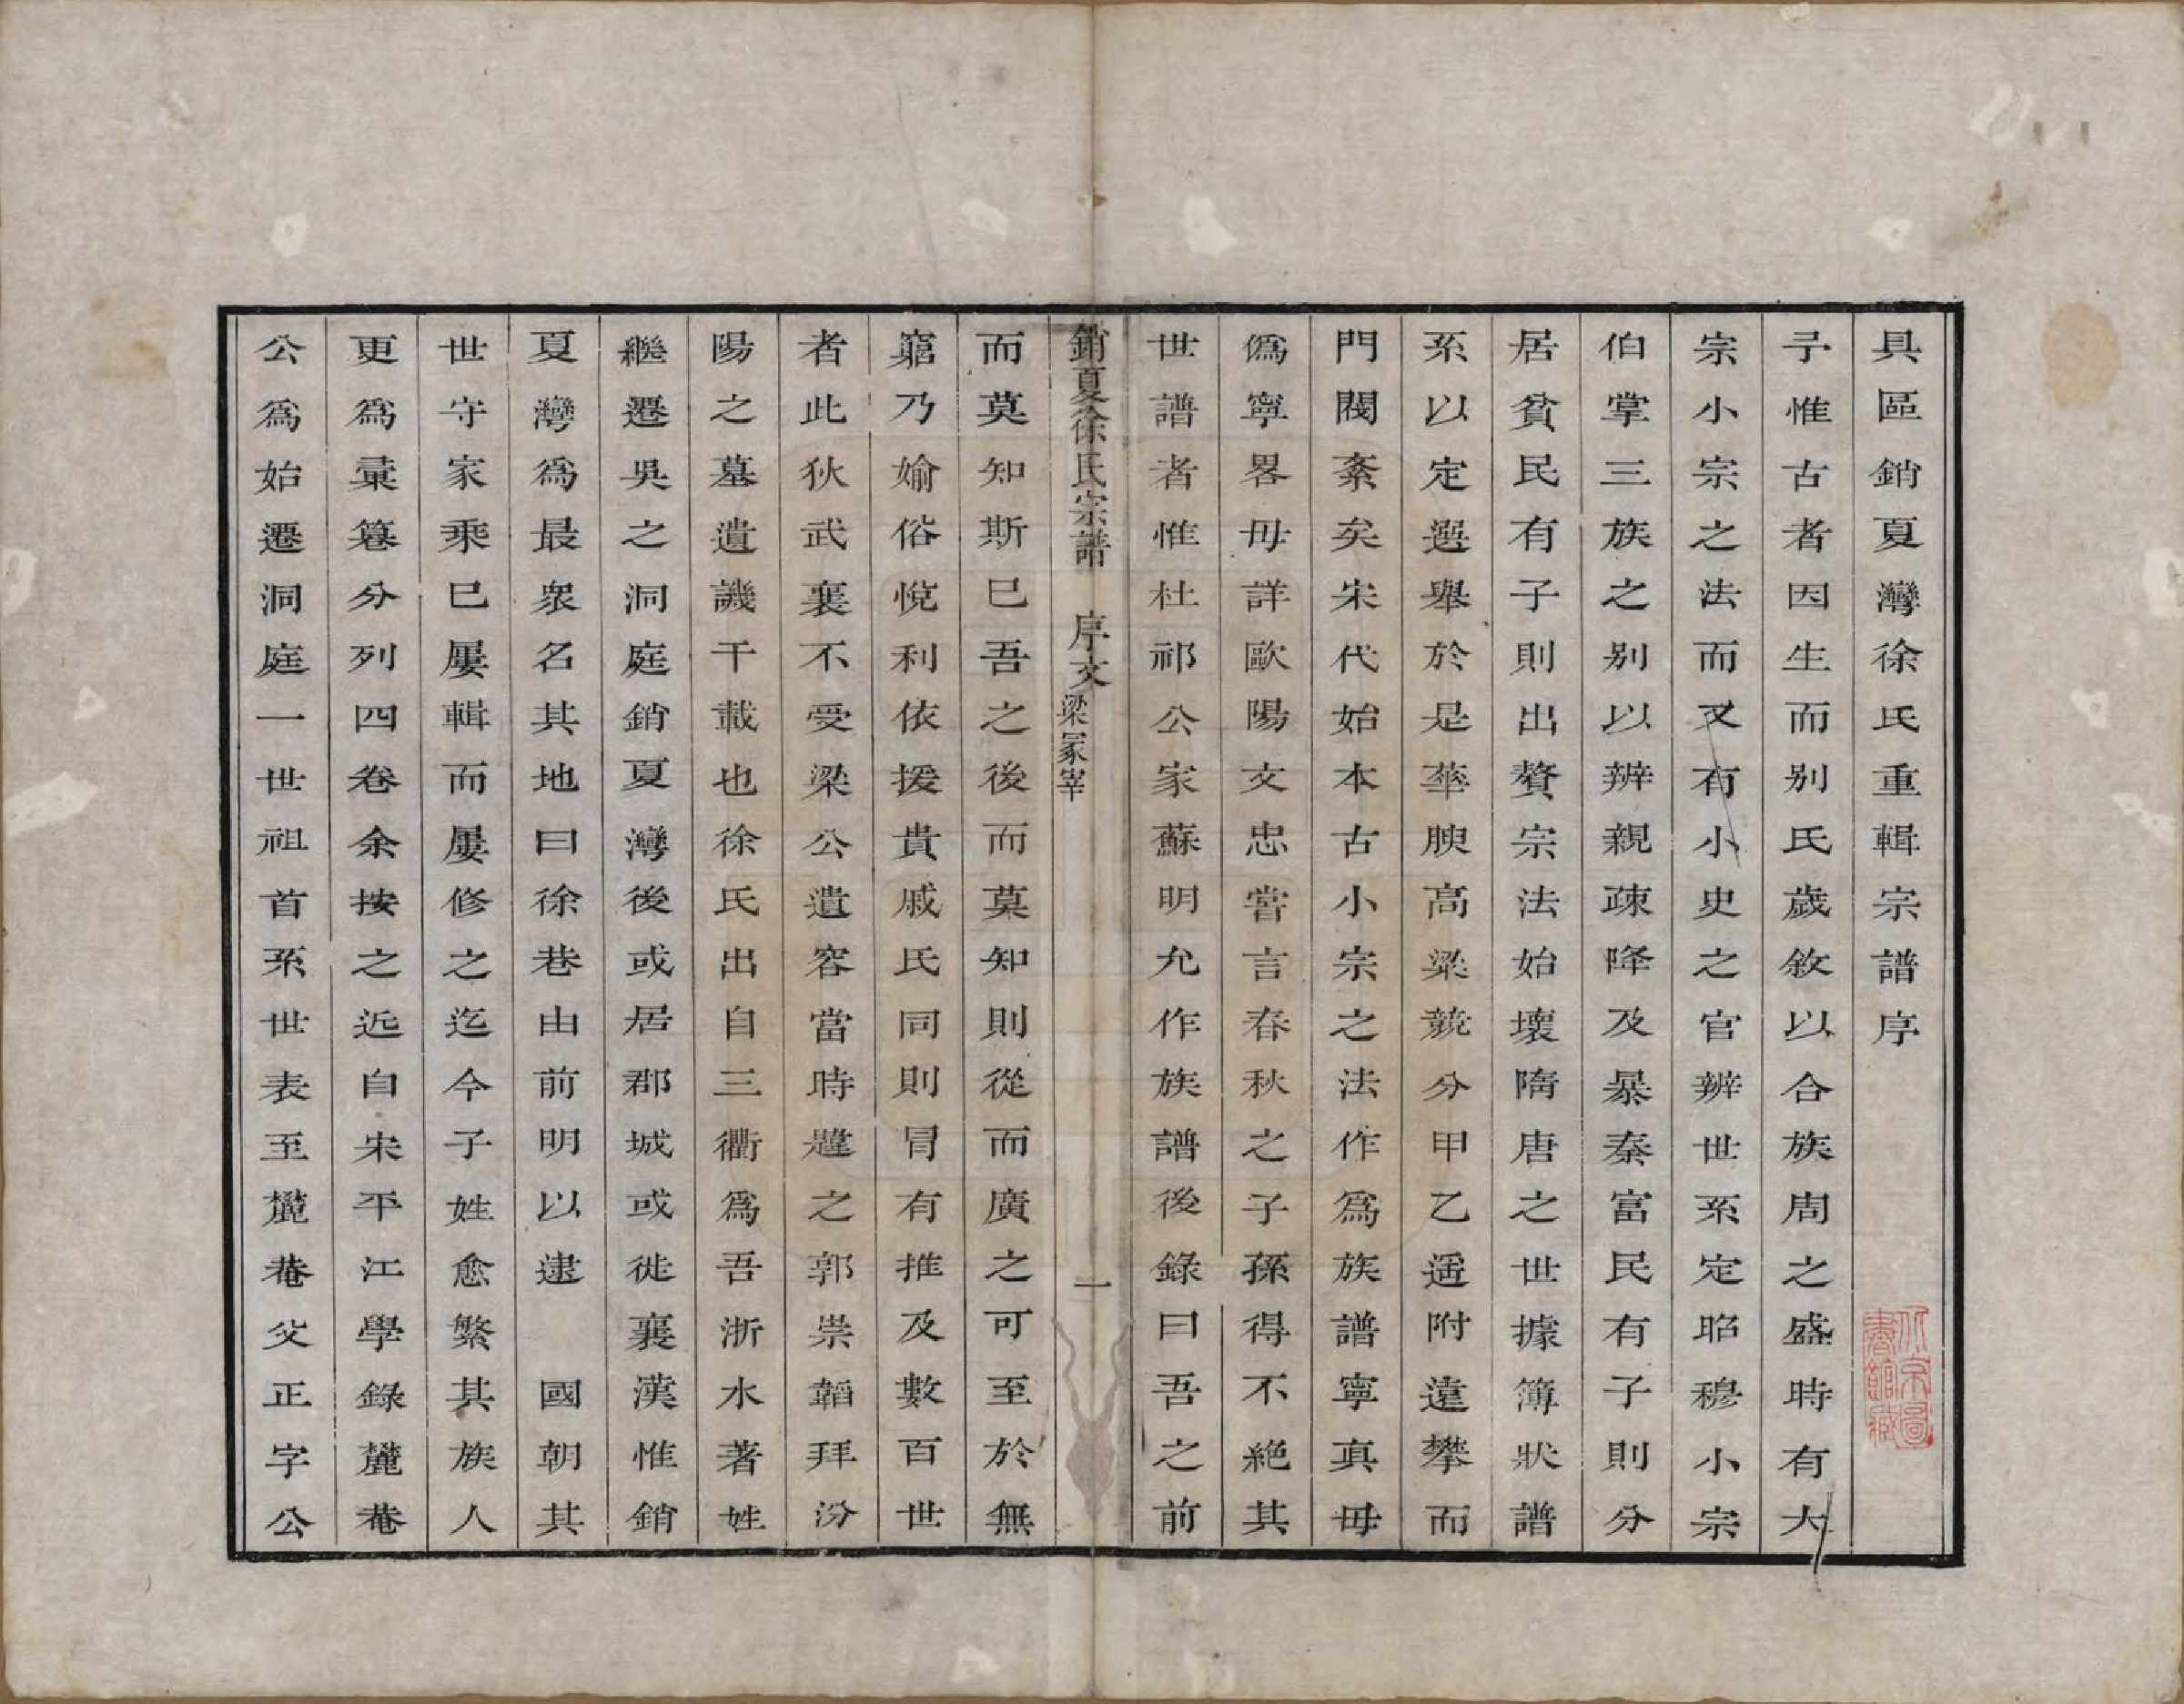 具區銷夏灣徐氏重輯宗譜序
子惟古者因生而別氏歲敘以合族周之盛時有大
宗小宗之法而又有小史之官辨世系定昭穆小宗
伯掌三族之別以辨親疎降及暴秦富民有子則分
居貧民有子則出贅宗法始壞隋唐之世據簿狀譜
系以定選舉於是華腴高梁競分甲乙遥附遠攀而
門閥紊矣宋代始本古小宗之法作爲族譜寧真毋
僞寧畧毋詳歐陽文忠嘗言春秋之子孫得不絕其
世譜者惟杜祁公家蘇明允作族譜後錄曰吾之前
銷夏徐氏宗譜 序文 梁冡宰 一
而莫知斯已吾之後而莫知則從而廣之可至於無
窮乃媮俗悅利依援貴戚氏同則冒有推及數百世
者此狄武襄不受梁公遺容當時韙之郭崇韜拜汾
陽之墓遺譏千載也徐氏出自三衢爲吾浙水著姓
繼遷吳之洞庭銷夏灣後或居郡城或徙襄漢惟銷
夏灣爲最衆名其地曰徐巷由前明以逮 國朝其
世守家乘巳屢輯而屢修之迄今子姓愈繁其族人
更爲彙篹分列四卷余按之近自宋平江學錄麓菴
公爲始遷洞庭一世祖首系世表至麓菴父正字公
北京圖書館藏